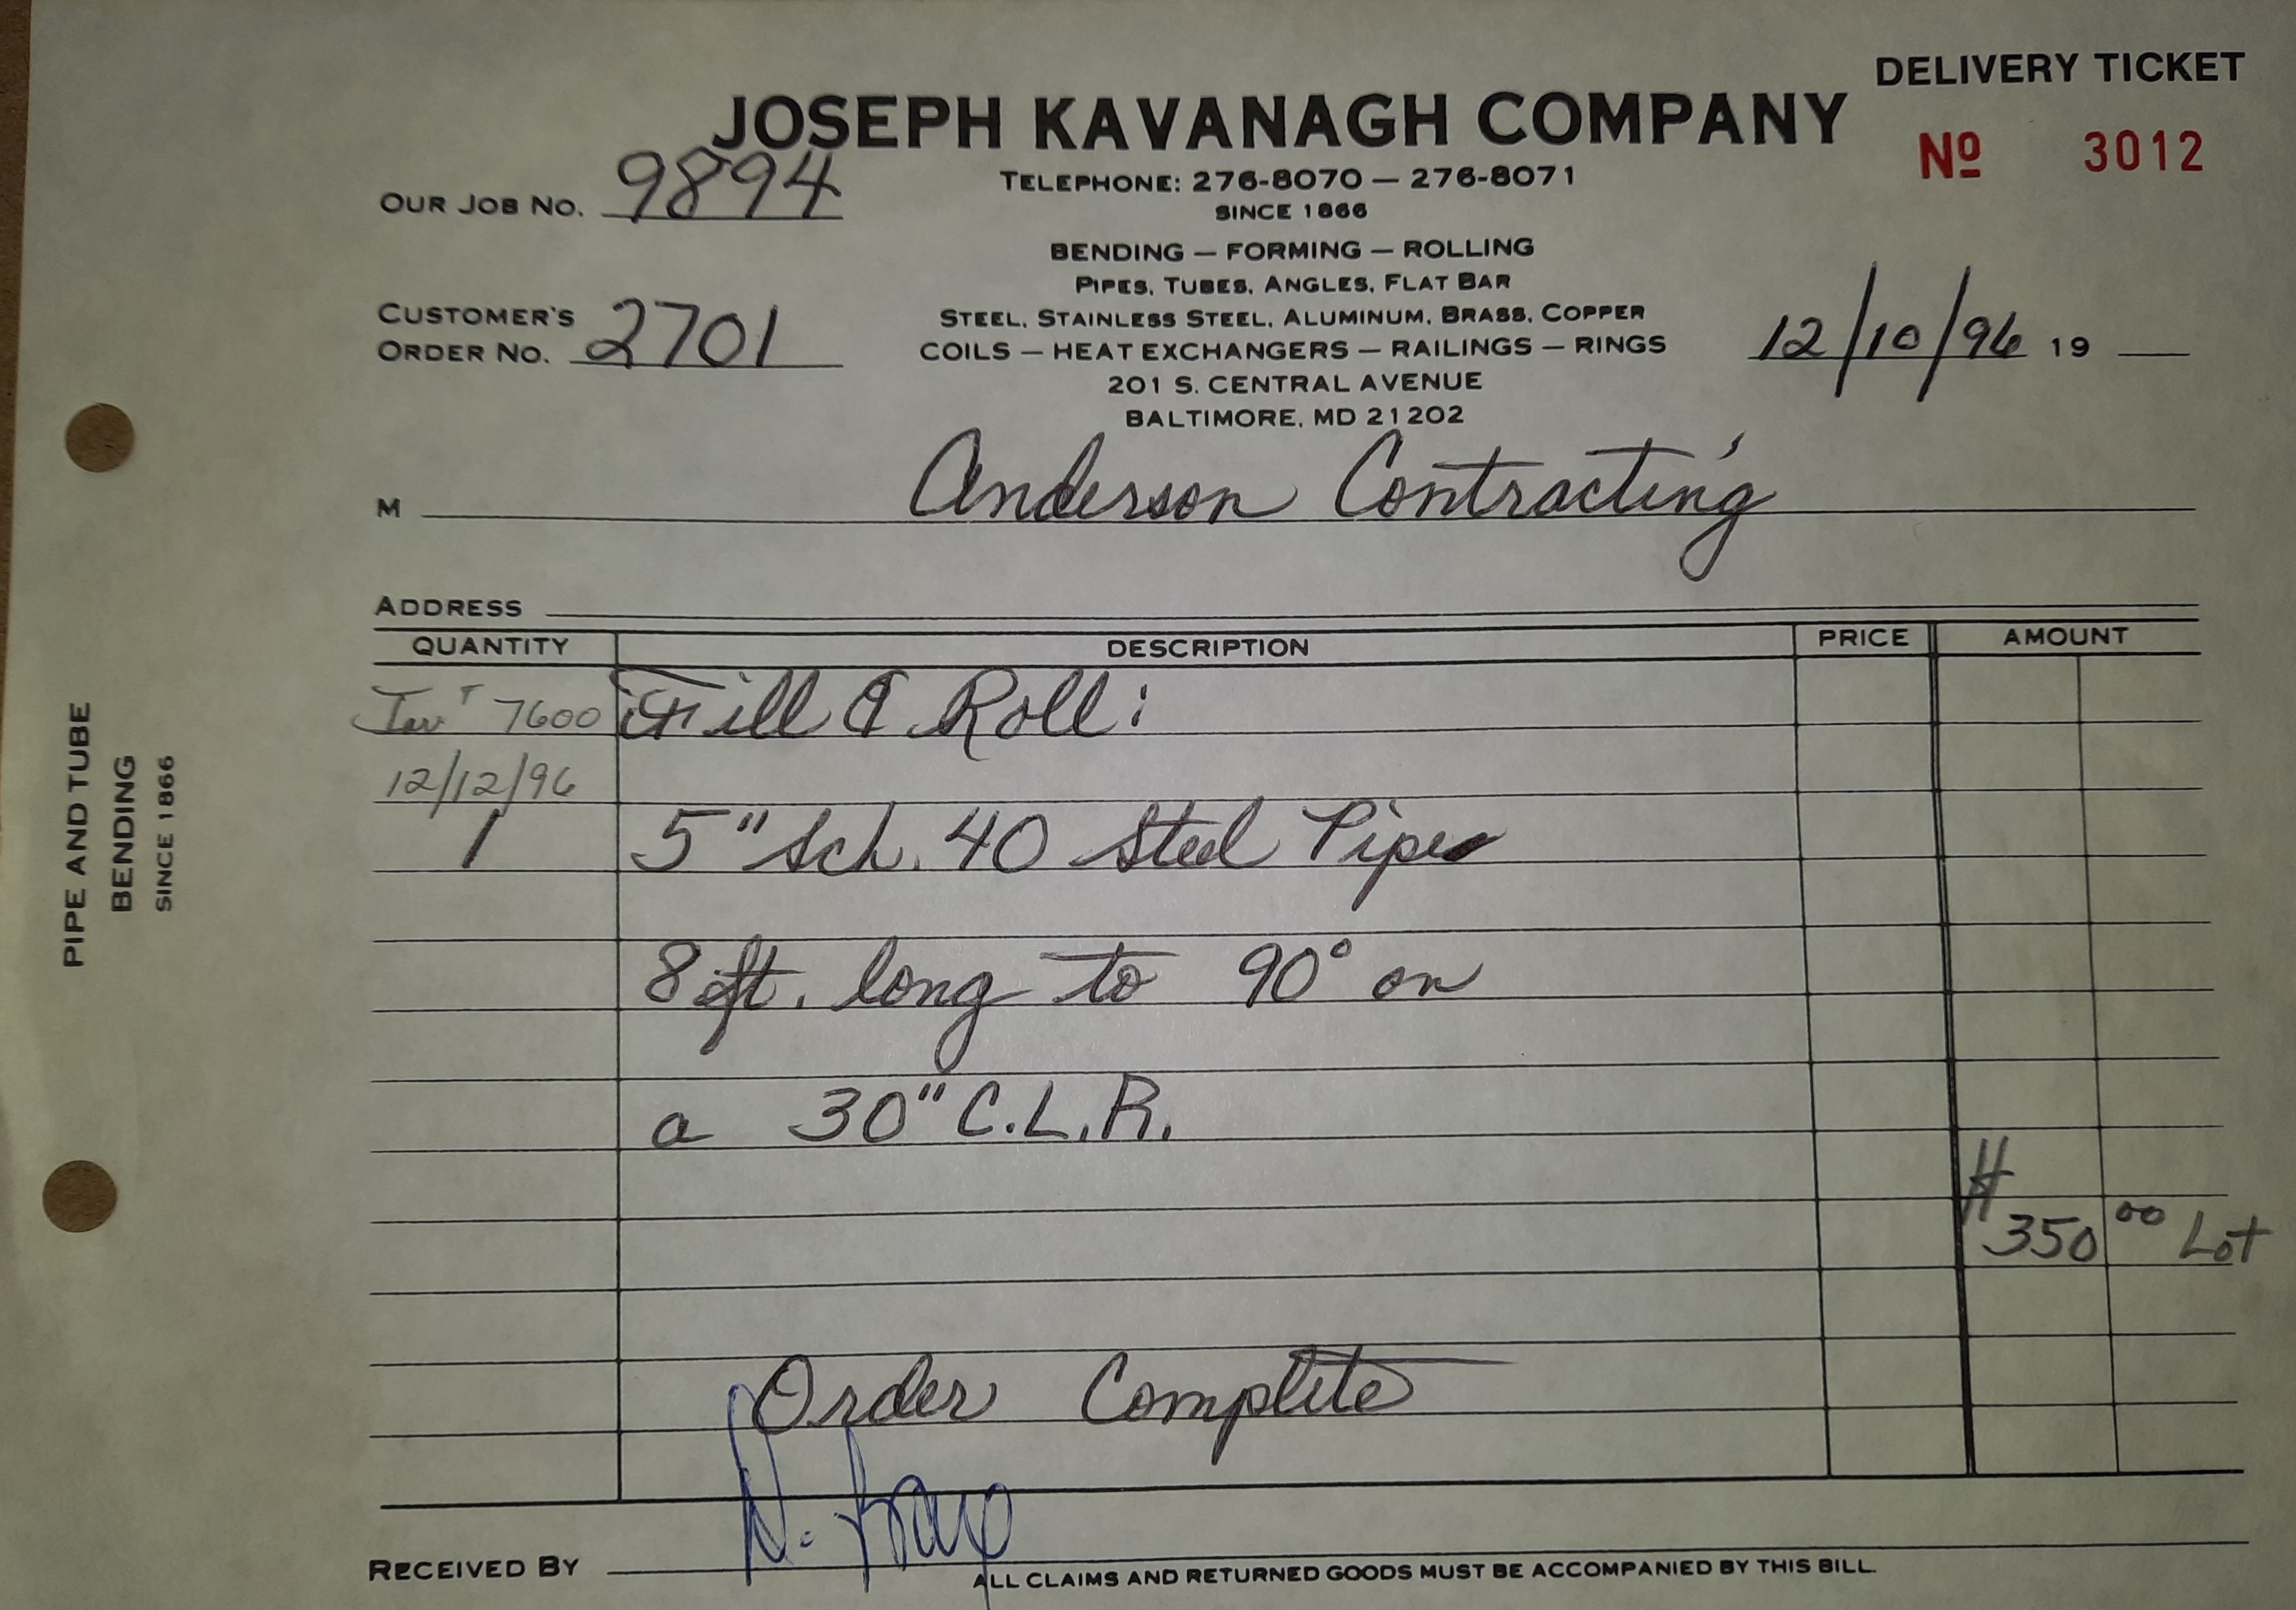 DELIVERY TICKET
JOSEPH KAVANAGH COMPANY
Nº 3012
OUR JOB NO. 9894
TELEPHONE: 276-8070 — 276-8071
SINCE 1866
BENDING — FORMING — ROLLING
PIPES, TUBES, ANGLES, FLAT BAR
CUSTOMER'S
ORDER NO. 2701
STEEL, STAINLESS STEEL, ALUMINUM, BRASS, COPPER
COILS — HEAT EXCHANGERS — RAILINGS — RINGS
12/10/96 19
201 S. CENTRAL AVENUE
BALTIMORE, MD 21202
M Anderson Contracting
ADDRESS
QUANTITY DESCRIPTION PRICE AMOUNT
Inv 7600 Fill & Roll:
12/12/96
1 5" Sch. 40 Steel Pipe
8 ft. long to 90° on
a 30" C.L.R.
$ 350 00 Lot
Order Complete
RECEIVED BY
ALL CLAIMS AND RETURNED GOODS MUST BE ACCOMPANIED BY THIS BILL.
PIPE AND TUBE
BENDING
SINCE 1866